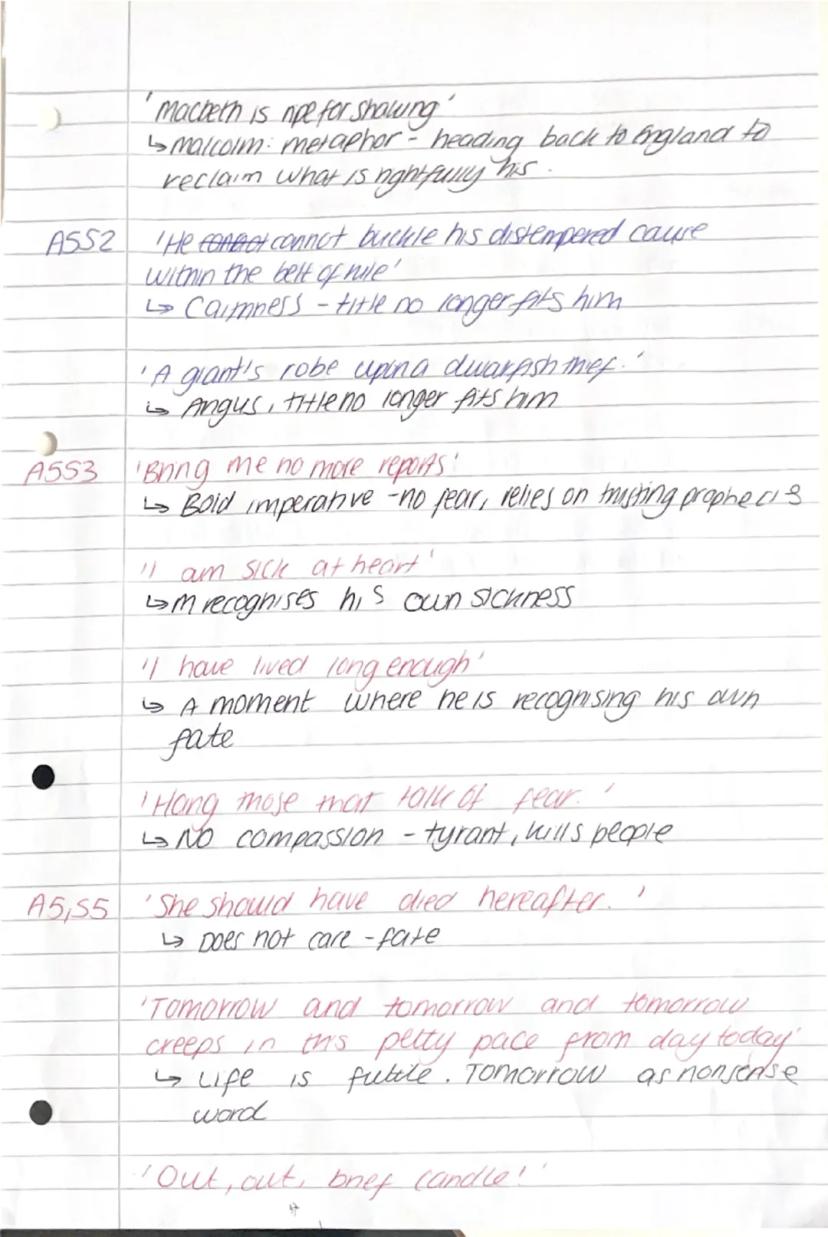 'Macbeth is ripe for shaking'
↳ Malcolm: metaphor - heading back to England to
reclaim what is rightfully his.
A5S2 'He cannot buckle his distempered cause
within the belt of rule'
↳ Caithness - title no longer fits him
'A giant's robe upon a dwarfish thief.'
↳ Angus, title no longer fits him
A5S3 'Bring me no more reports'
↳ Bold imperative - no fear, relies on trusting prophecies
'I am sick at heart'
↳ M recognises his own sickness
'I have lived long enough'
↳ A moment where he is recognising his own
fate
'Hang those that talk of fear.'
↳ No compassion - tyrant, kills people
A5,S5 'She should have died hereafter.'
↳ Does not care - fate
'Tomorrow and tomorrow and tomorrow
creeps in this petty pace from day to day'
↳ Life is futile. Tomorrow as nonsense
word
'Out, out, brief candle!'